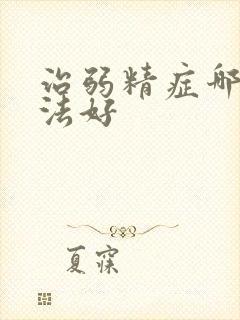 治弱精症哪
法好
夏寐